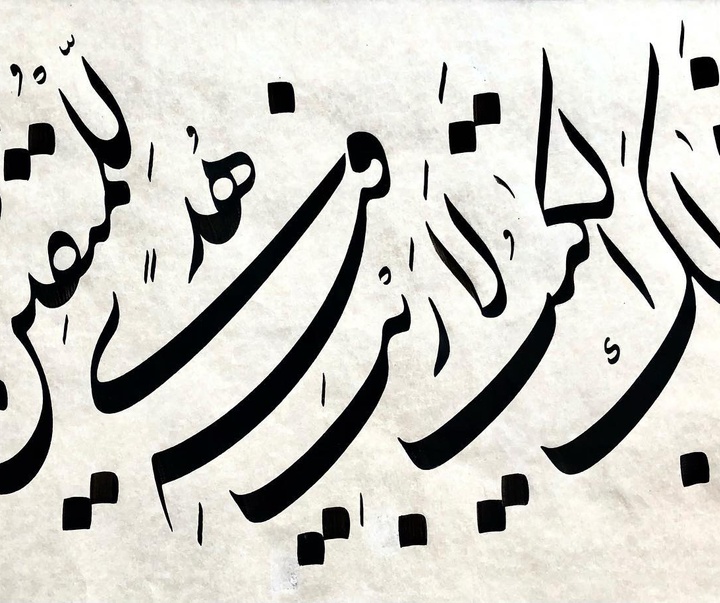 ذَٰلِكَ الْكِتَابُ لَا رَيْبَ فِيهِ هُدًى لِّلْمُتَّقِينَ